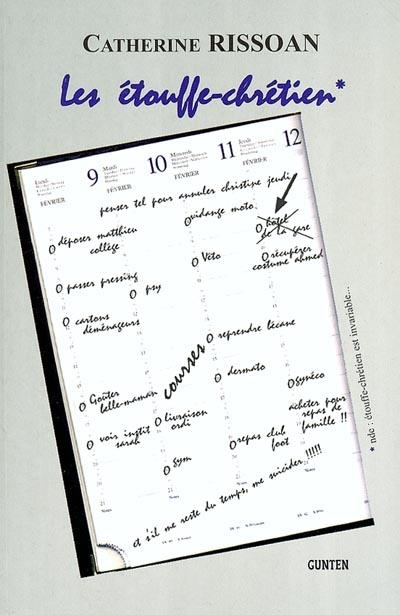 CATHERINE RISSOAN
Les étouffe-chrétien*
Lundi
9
FÉVRIER
Mardi
10
FÉVRIER
Mercredi
11
FÉVRIER
Jeudi
12
FÉVRIER
penser tel pour annuler christine jeudi
déposer matthieu
collège
passer pressing
cartons
déménageurs
Goûter
belle-maman
voir instit
sarah
psy
courses
livraison
ordi
gym
vidange moto
Véto
reprendre bécane
dermato
repas club
foot
hôtel
de la gare
récupérer
costume ahmed
gynéco
acheter pour
repas de
famille !!
et s'il me reste du temps, me suicider !!!!!
* nde : étouffe-chrétien est invariable...
GUNTEN